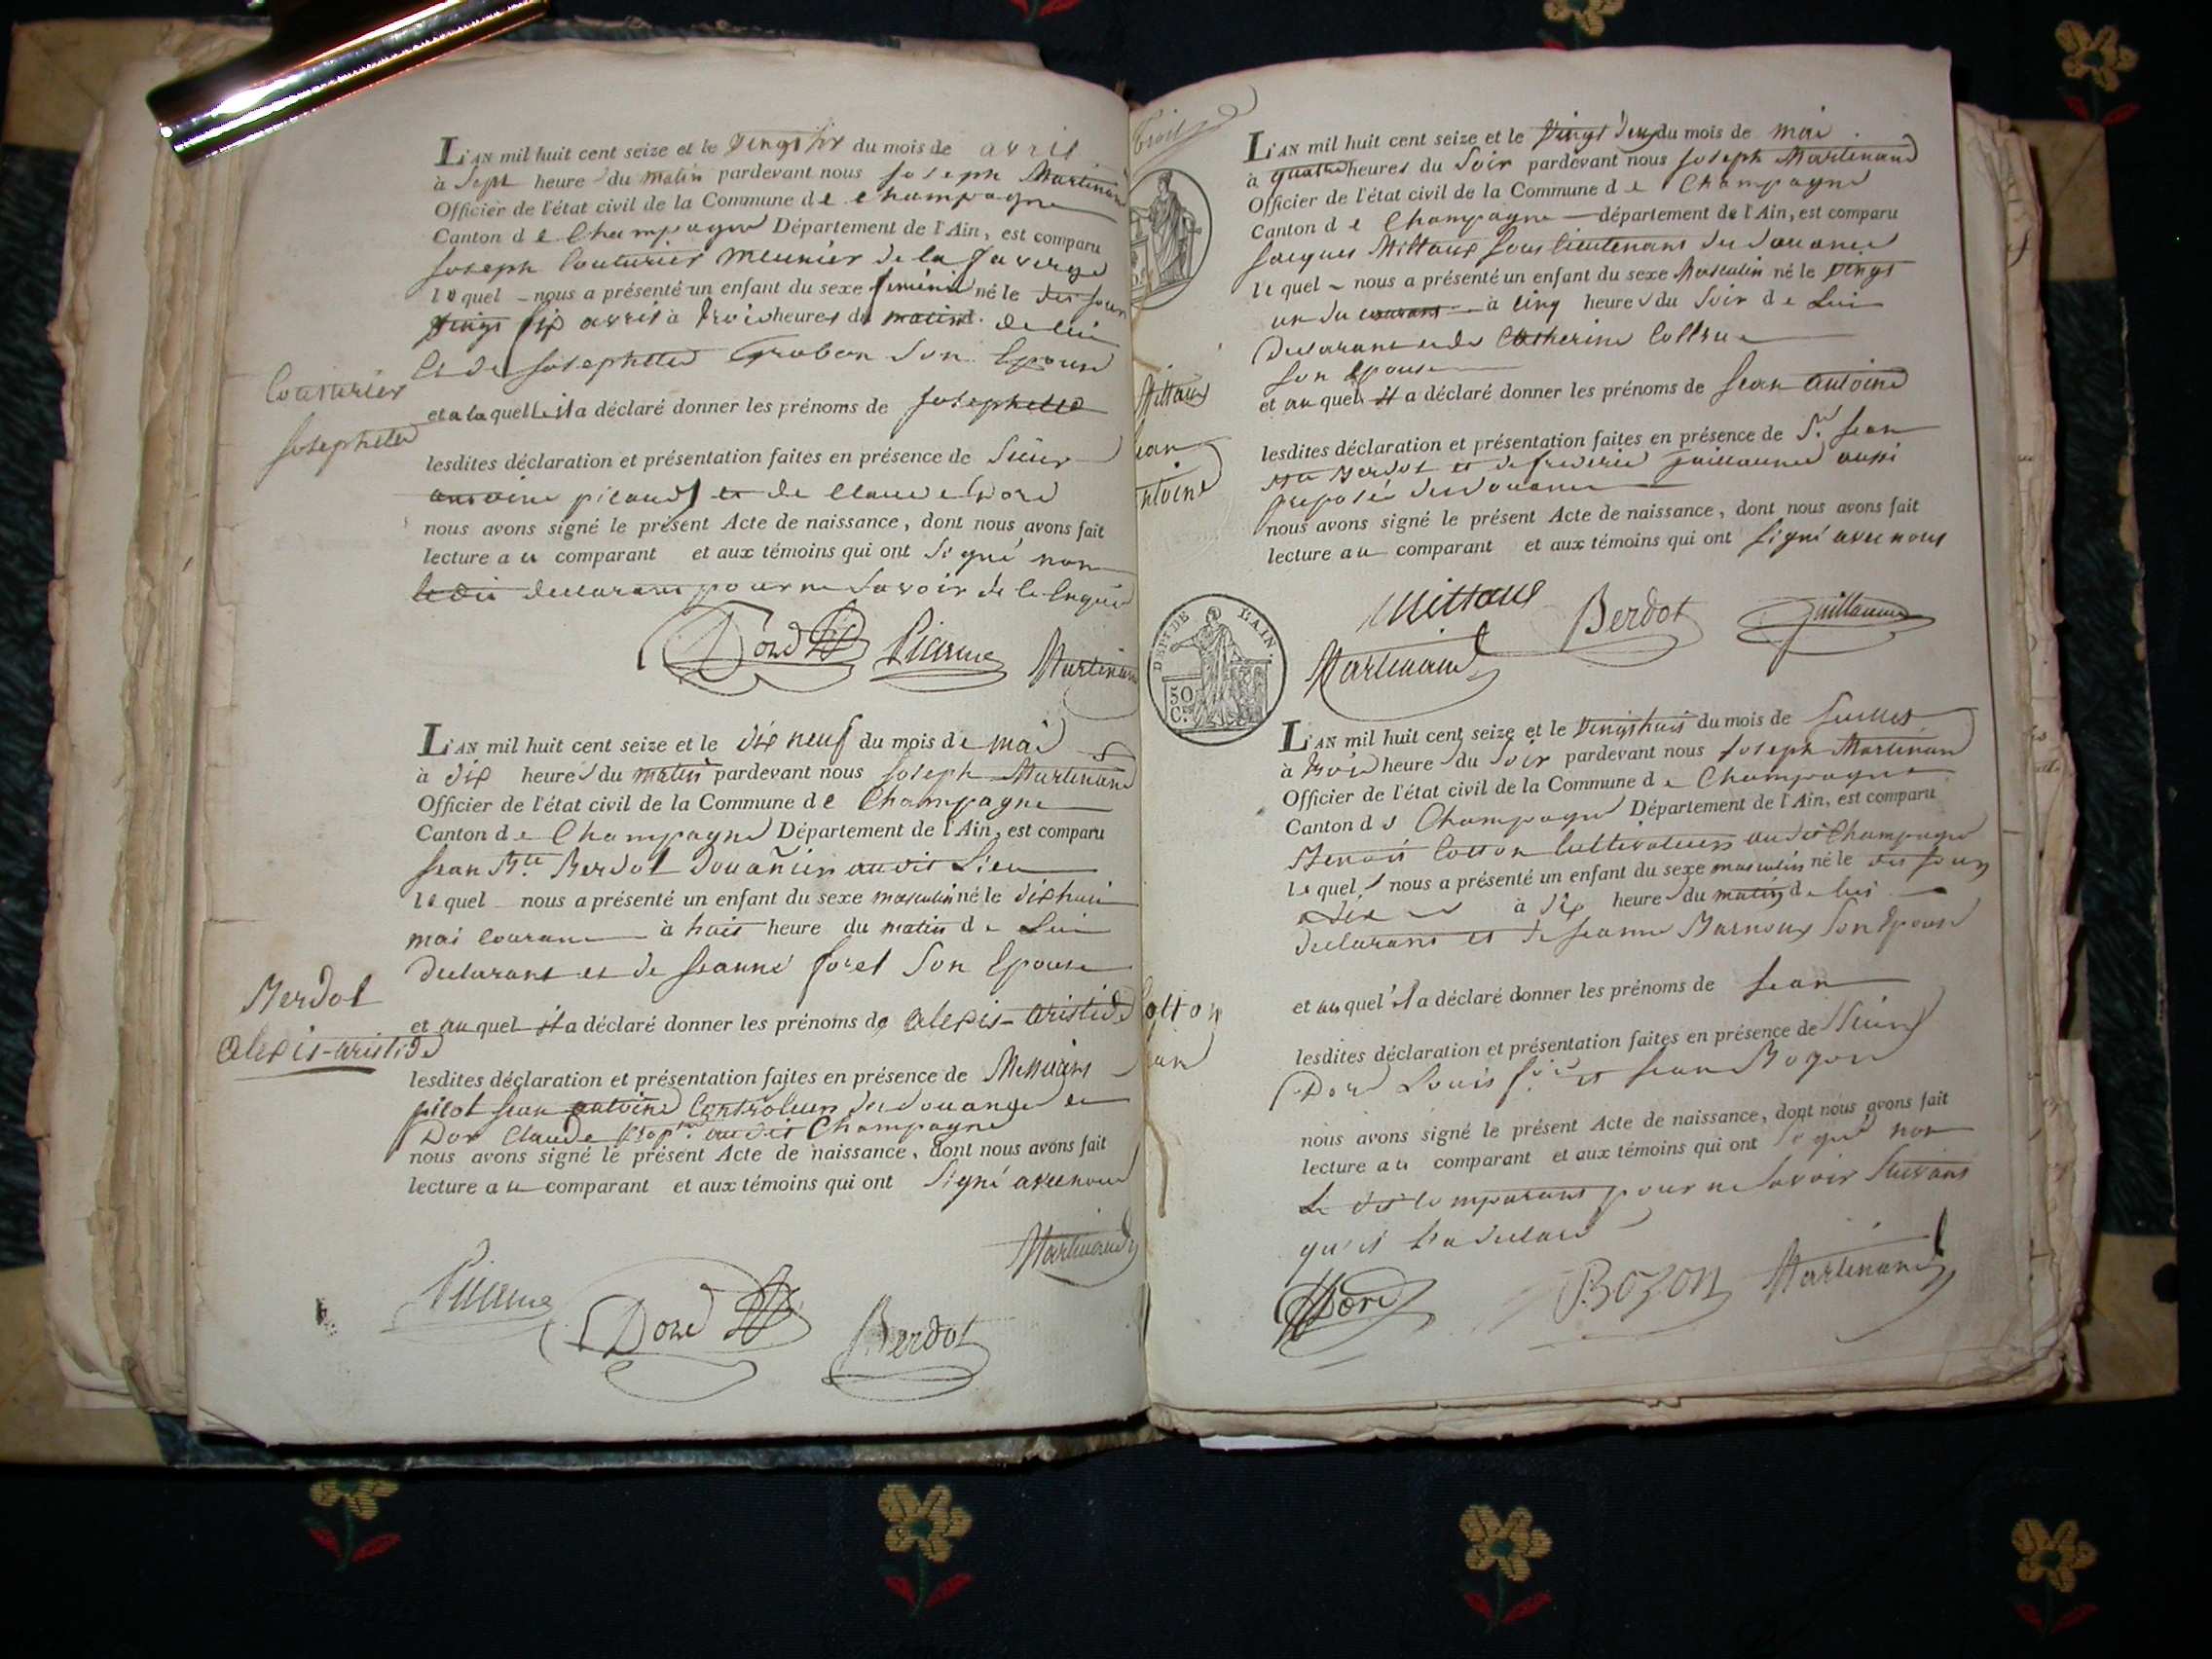 L'AN mil huit cent seize et le vingt six du mois de avril
à Sept heures du matin pardevant nous Joseph Martinand
Officier de l'état civil de la Commune de Champagne
Canton de Champagne Département de l'Ain, est comparu
Joseph Couturier meunier de la
lequel nous a présenté un enfant du sexe féminin né le dis jour
vingt six avril à trois heures du matin de lui
et de Josephette Grobon son Epouse
Couturier
Josephette
et a laquelle il a déclaré donner les prénoms de Josephette
lesdites déclaration et présentation faites en présence de Sieur
antoine et de Claude Dord
nous avons signé le présent Acte de naissance, dont nous avons fait
lecture au comparant et aux témoins qui ont Signé non
le dit declarant pour ne Savoir de ce Enquis
Dord Martinand
L'AN mil huit cent seize et le dix neuf du mois de mai
à dix heures du matin pardevant nous Joseph Martinand
Officier de l'état civil de la Commune de Champagne
Canton de Champagne Département de l'Ain, est comparu
Jean Bte Berdot Douanier audit Lieu
lequel nous a présenté un enfant du sexe masculin né le dix huit
mai courant à huit heure du matin de Lui
declarant et de Jeanne foret Son Epouse
Berdot
alexis-aristide
et au quel il a déclaré donner les prénoms de alexis-aristide
lesdites déclaration et présentation faites en présence de Messieurs
Jean antoine Controleur des douanes et
Dord Claude audit Champagne
nous avons signé le présent Acte de naissance, dont nous avons fait
lecture au comparant et aux témoins qui ont Signé avec nous
Martinand
Dord Berdot
L'AN mil huit cent seize et le vingt deux du mois de mai
à quatre heures du Soir pardevant nous Joseph Martinand
Officier de l'état civil de la Commune de Champagne
Canton de Champagne département de l'Ain, est comparu
Jacques Mittaux Sous lieutenant des douanes
lequel nous a présenté un enfant du sexe Masculin né le vingt
un du courant à cinq heures du Soir de Lui
Declarant et de Catherine
son Epouse
Mittaux
Jean
antoine
et au quel il a déclaré donner les prénoms de Jean antoine
lesdites déclaration et présentation faites en présence de Sr Jean
Bte Berdot et de frederic guillaume aussi
preposés des douanes
nous avons signé le présent Acte de naissance, dont nous avons fait
lecture au comparant et aux témoins qui ont Signé avec nous
Mittaux Berdot guillaume
Martinand
DEPt DE L'AIN.
50 C.
L'AN mil huit cent seize et le vingt huit du mois de Juillet
à trois heure du Soir pardevant nous Joseph Martinand
Officier de l'état civil de la Commune de Champagne
Canton de Champagne Département de l'Ain, est comparu
Benoit Cotton Cultivateur audit Champagne
lequel nous a présenté un enfant du sexe masculin né le dis jour
à dix heure du matin de lui
declarant et de Jeanne Son Epouse
Cotton
Jean
et au quel il a déclaré donner les prénoms de Jean
lesdites déclaration et présentation faites en présence de Sieur
Dord Louis et Jean Bozon
nous avons signé le présent Acte de naissance, dont nous avons fait
lecture au comparant et aux témoins qui ont Signé non
Le dit Comparant pour ne Savoir Suivant
qu'il l'a declaré
Dord BOZON Martinand